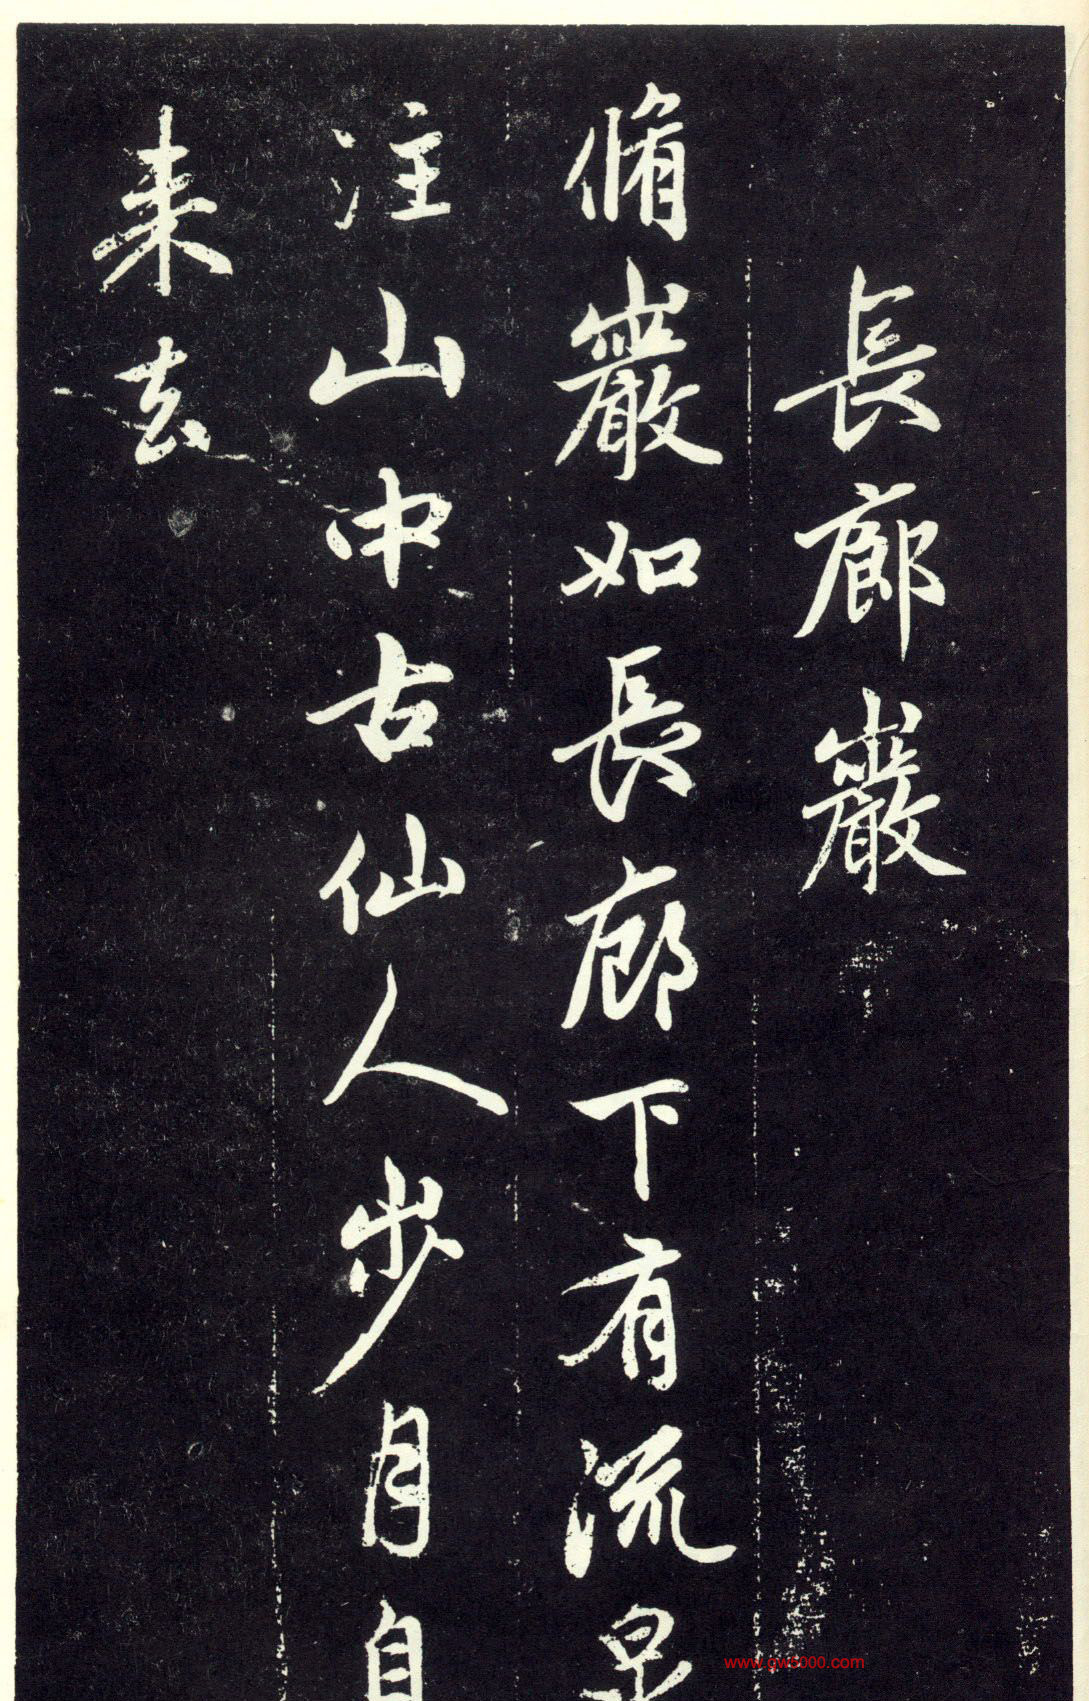 長廊巖
脩巖如長廊下有流泉
注山中古仙人步月自
来去
www.gw5000.com